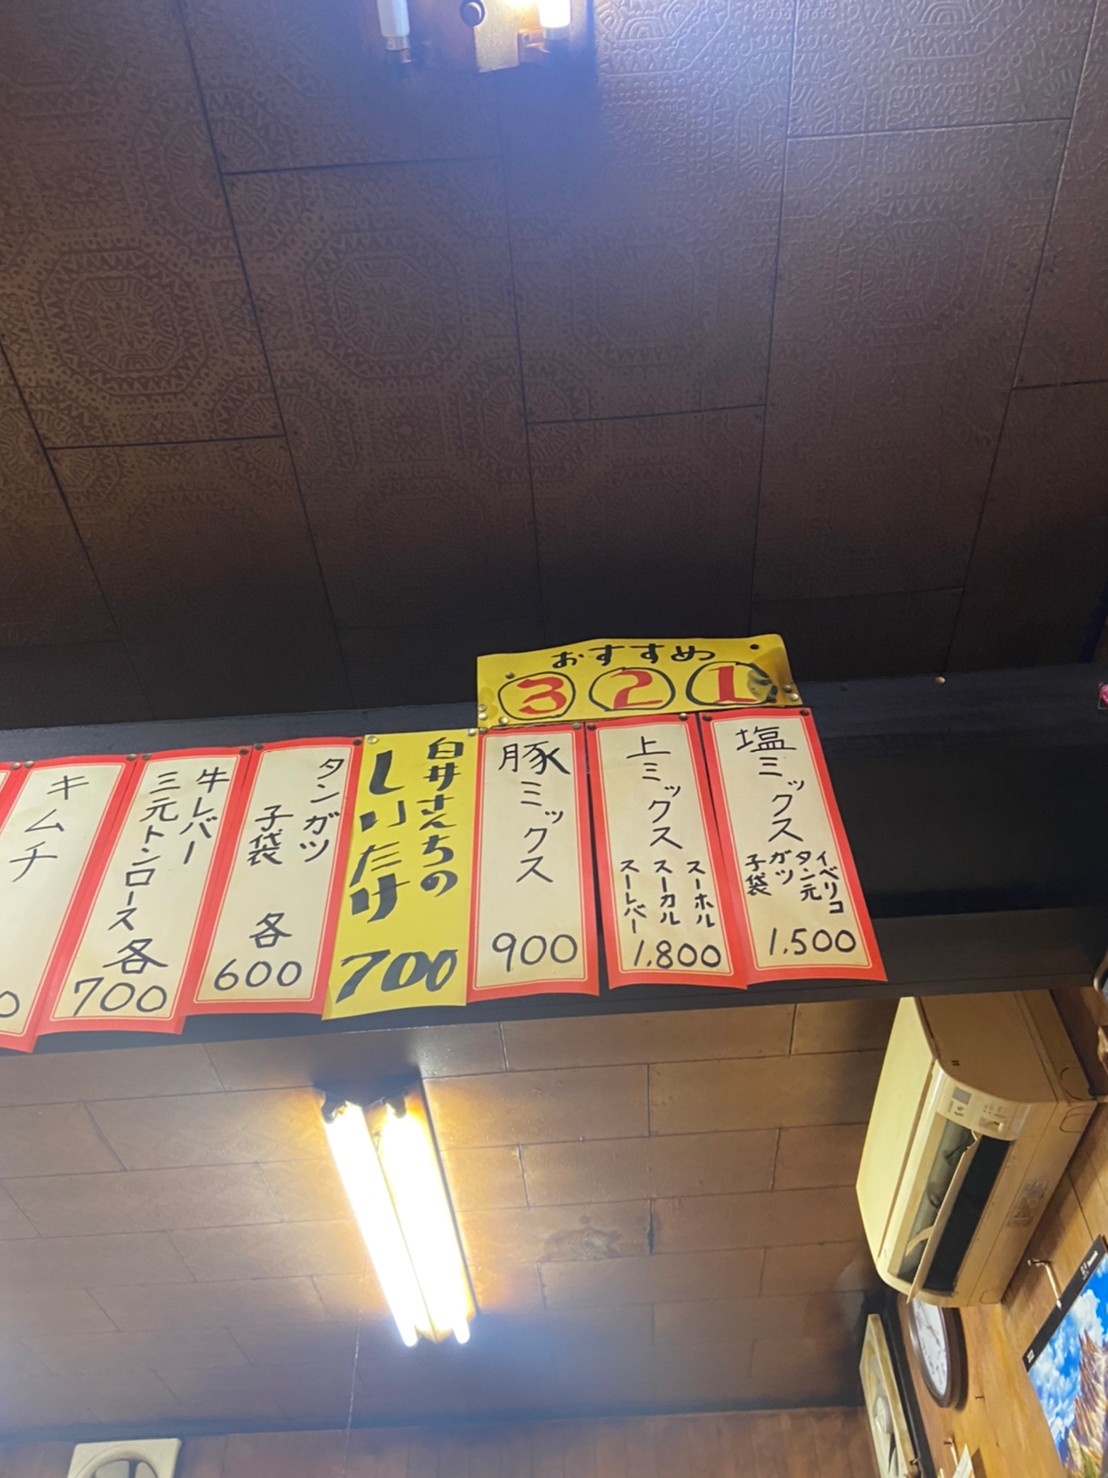 おすすめ
3 2 1
塩ミックス
イベリコ
タン元
ガツ
子袋
1,500
上ミックス
スーホル
スーカル
スーレバー
1,800
豚ミックス
900
白井さんちの
しいたけ
700
タンガツ
子袋
各
600
牛レバー
三元トンロース
各
700
キムチ
0